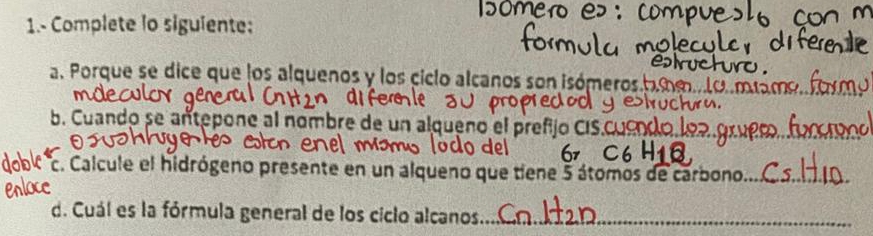 Isomero es: compuesto con m
formula molecular diferente
estructura.
1.- Complete lo siguiente:
a. Porque se dice que los alquenos y los ciclo alcanos son isómeros.tienen la misma formul
molecular general CnH2n diferente su propiedad y estructura.
b. Cuando se antepone al nombre de un alqueno el prefijo CIS.cuando los grupos funcional
o sustituyentes esten en el mismo lado del
doble
enlace
6r C6 H12
c. Calcule el hidrógeno presente en un alqueno que tiene 5 átomos de carbono....C5.H10.
d. Cuál es la fórmula general de los ciclo alcanos....Cn H2n